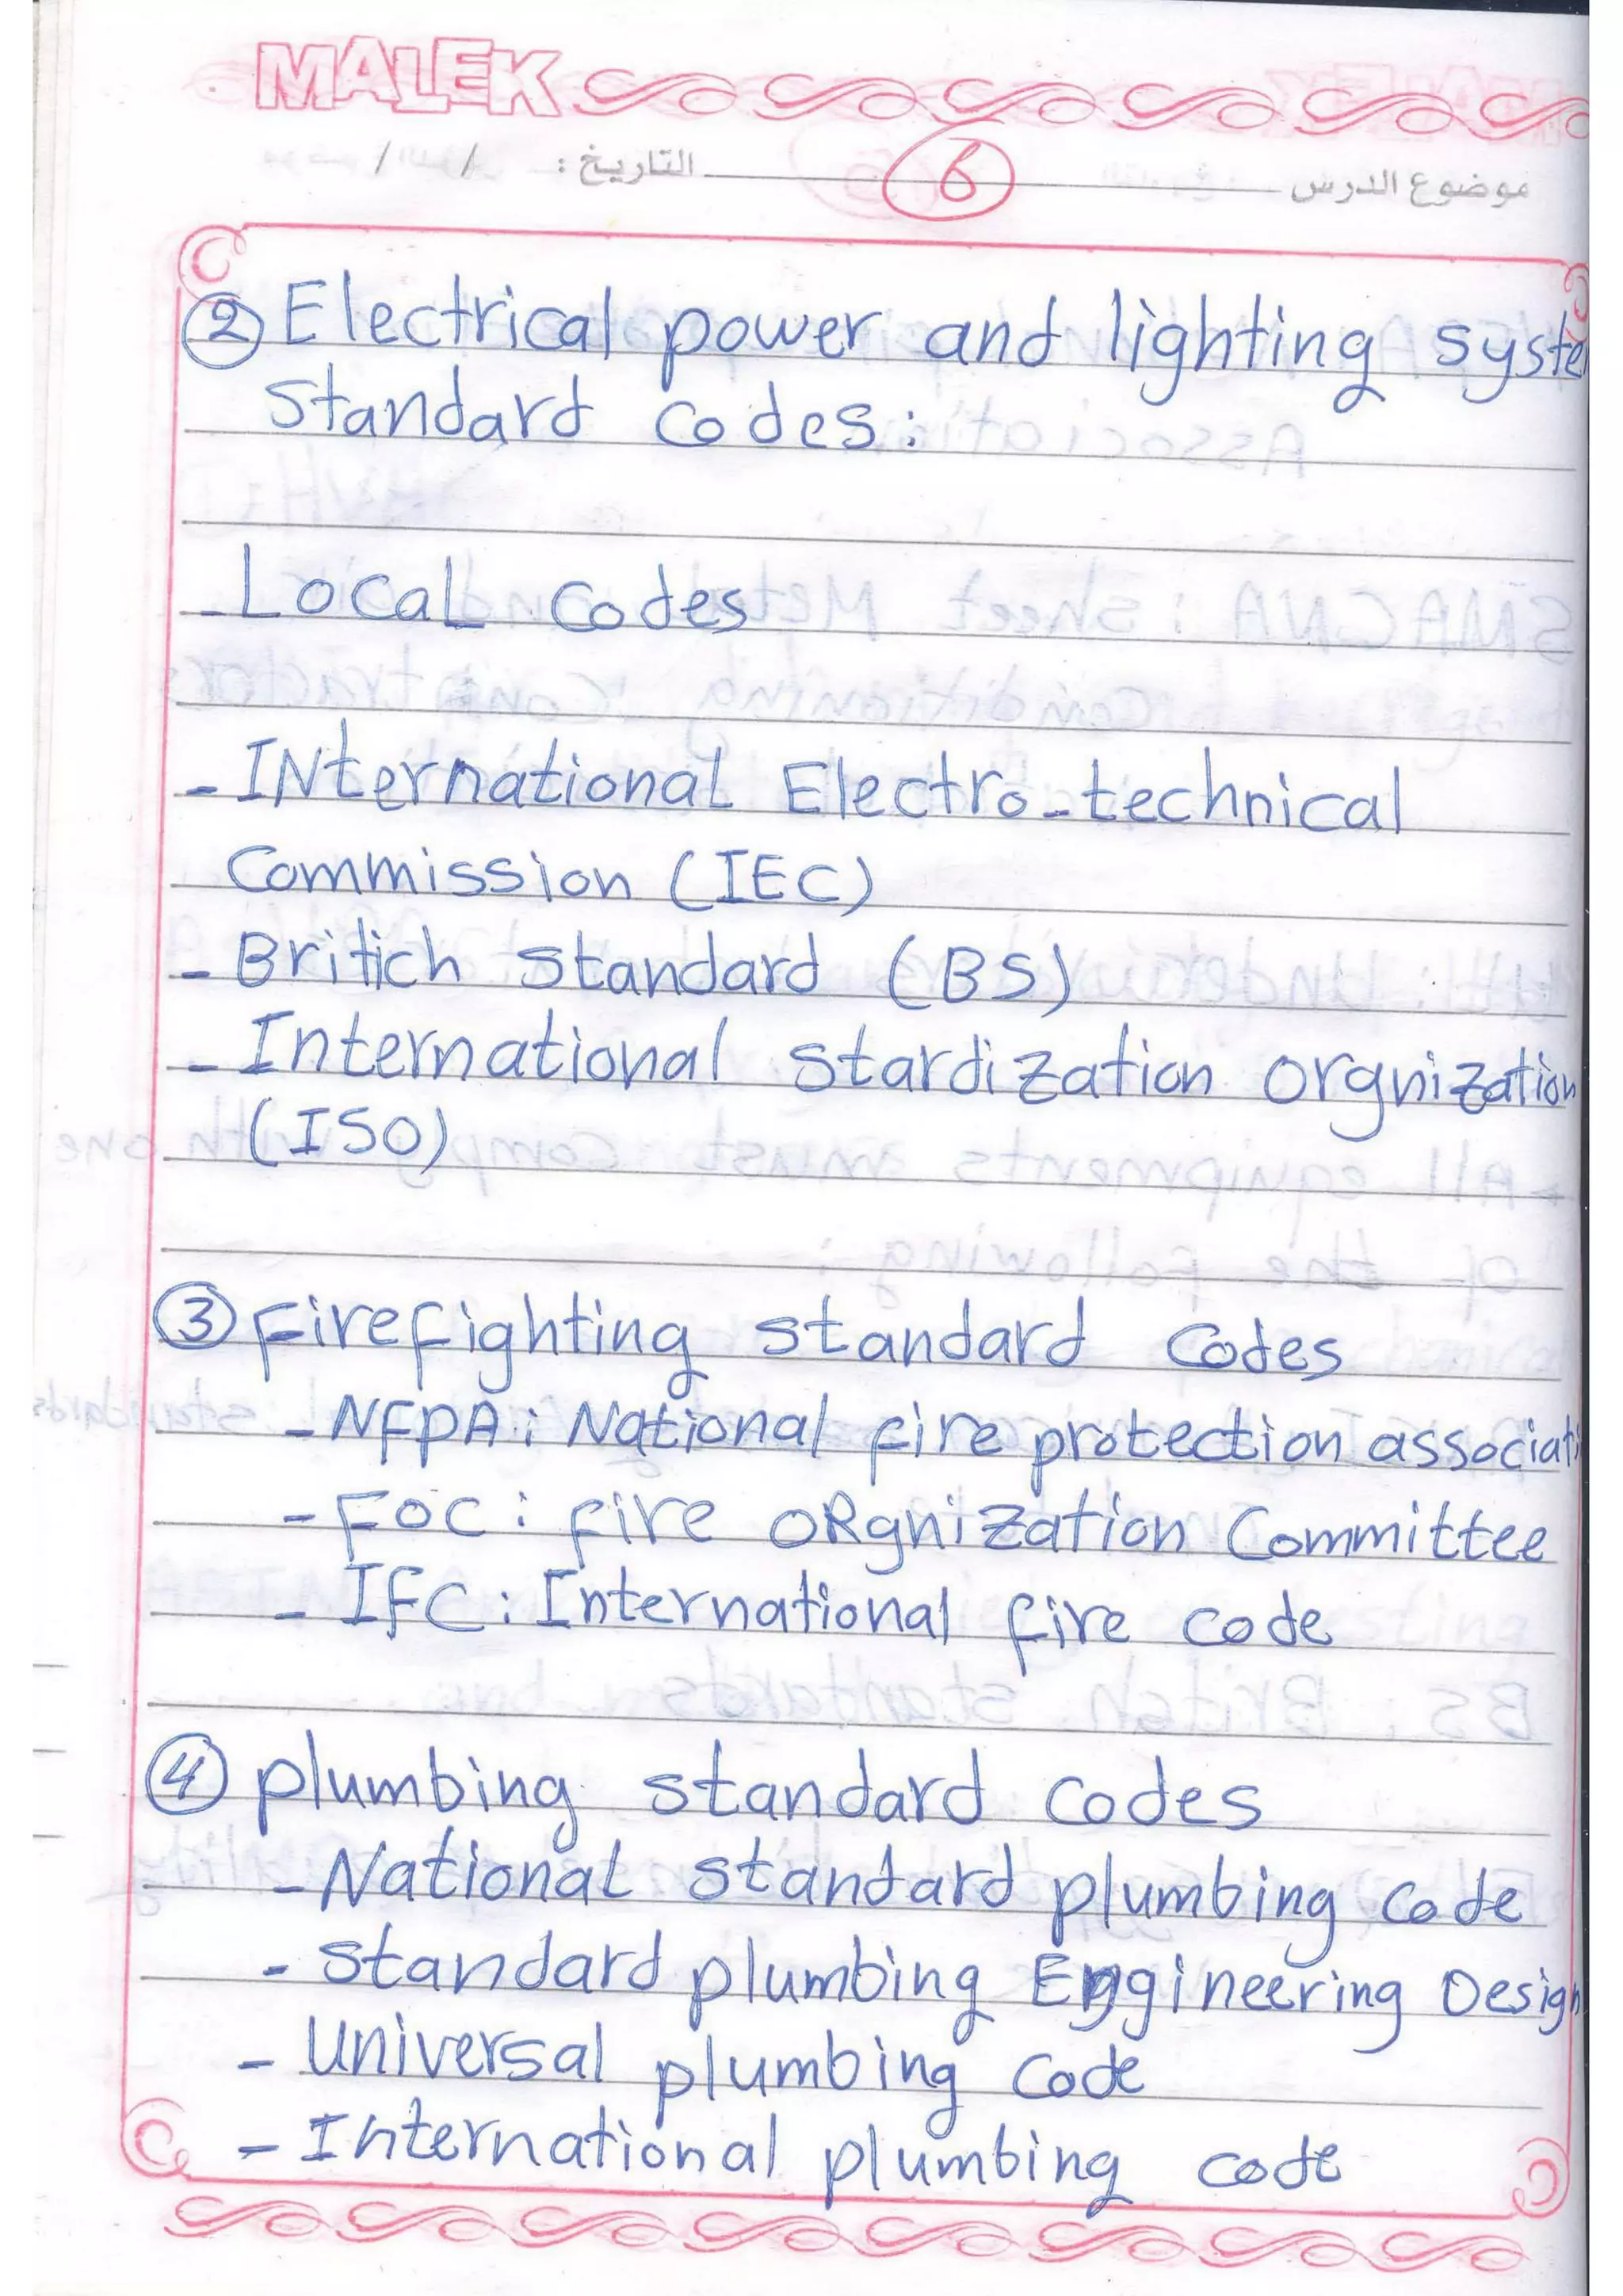 MALEK
موضوع الدرس 6 التاريخ: / /
② Electrical power and lighting syste
Standard Codes:
- Local Codes
- INternational Electro-technical
Commission (IEC)
- Britich Standard (BS)
- International stardization orgnization
(ISO)
③ Firefighting standard Codes
- NFPA: National fire protection associati
- FOC: fire oRgnization Committee
- IFC: International fire code
④ plumbing standard Codes
- National standard plumbing Code
- standard plumbing Engineering Design
- Universal plumbing Code
- International plumbing code